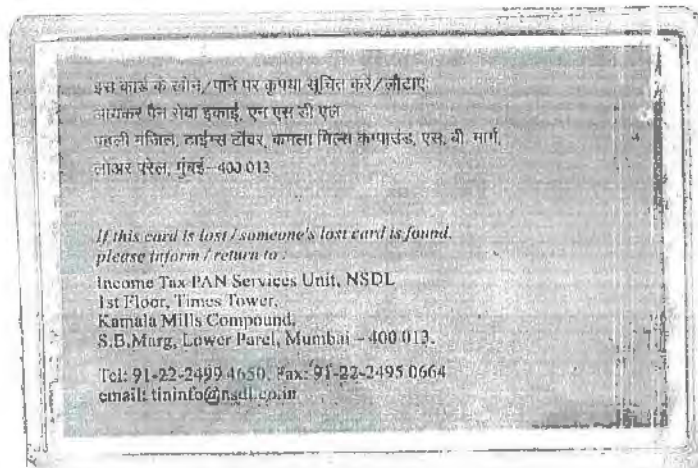 इस कार्ड के खोने/पाने पर कृपया सूचित करें/लौटाएं
आयकर पैन सेवा इकाई, एन एस डी एल
पहली मंजिल, टाईम्स टॉवर, कमला मिल्स कंपाउंड, एस. बी. मार्ग,
लोअर परेल, मुंबई–400 013
If this card is lost / someone's lost card is found,
please inform / return to :
Income Tax PAN Services Unit, NSDL
1st Floor, Times Tower,
Kamala Mills Compound,
S.B.Marg, Lower Parel, Mumbai – 400 013.
Tel: 91-22-2499 4650, Fax: 91-22-2495 0664
email: tininfo@nsdl.co.in